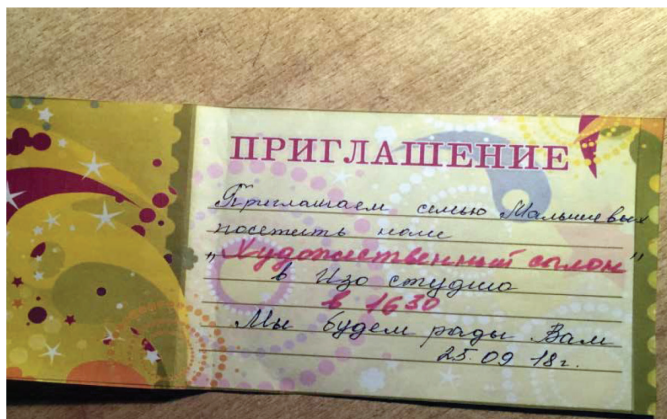 ПРИГЛАШЕНИЕ
Приглашаем семью Малышевых
посетить наш
„Художественный салон"
в Изо студию
в 16 30
Мы будем рады Вам
25.09 18г.